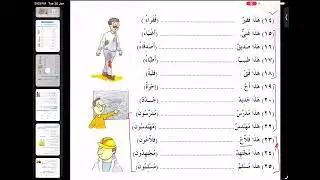 (١٤) هٰذَا فَقِيرٌ ............ (فُقَرَاءُ)
(١٥) هٰذَا غَنِيٌّ ............ (أَغْنِيَاءُ)
(١٦) هٰذَا صَدِيقٌ ............ (أَصْدِقَاءُ)
(١٧) هٰذَا طَبِيبٌ ............ (أَطِبَّاءُ)
(١٨) هٰذَا فَتًى ............ (فِتْيَةٌ)
(١٩) هٰذَا أَخٌ ............ (إِخْوَةٌ)
(٢٠) هٰذَا جَدِيدٌ ............ (جُدُدٌ)
(٢١) هٰذَا مُدَرِّسٌ ............ (مُدَرِّسُونَ)
(٢٢) هٰذَا مُهَنْدِسٌ ............ (مُهَنْدِسُونَ)
(٢٣) هٰذَا فَلَّاحٌ ............ (فَلَّاحُونَ)
(٢٤) هٰذَا مُجْتَهِدٌ ............ (مُجْتَهِدُونَ)
(٢٥) هٰذَا مُسْلِمٌ ............ (مُسْلِمُونَ)